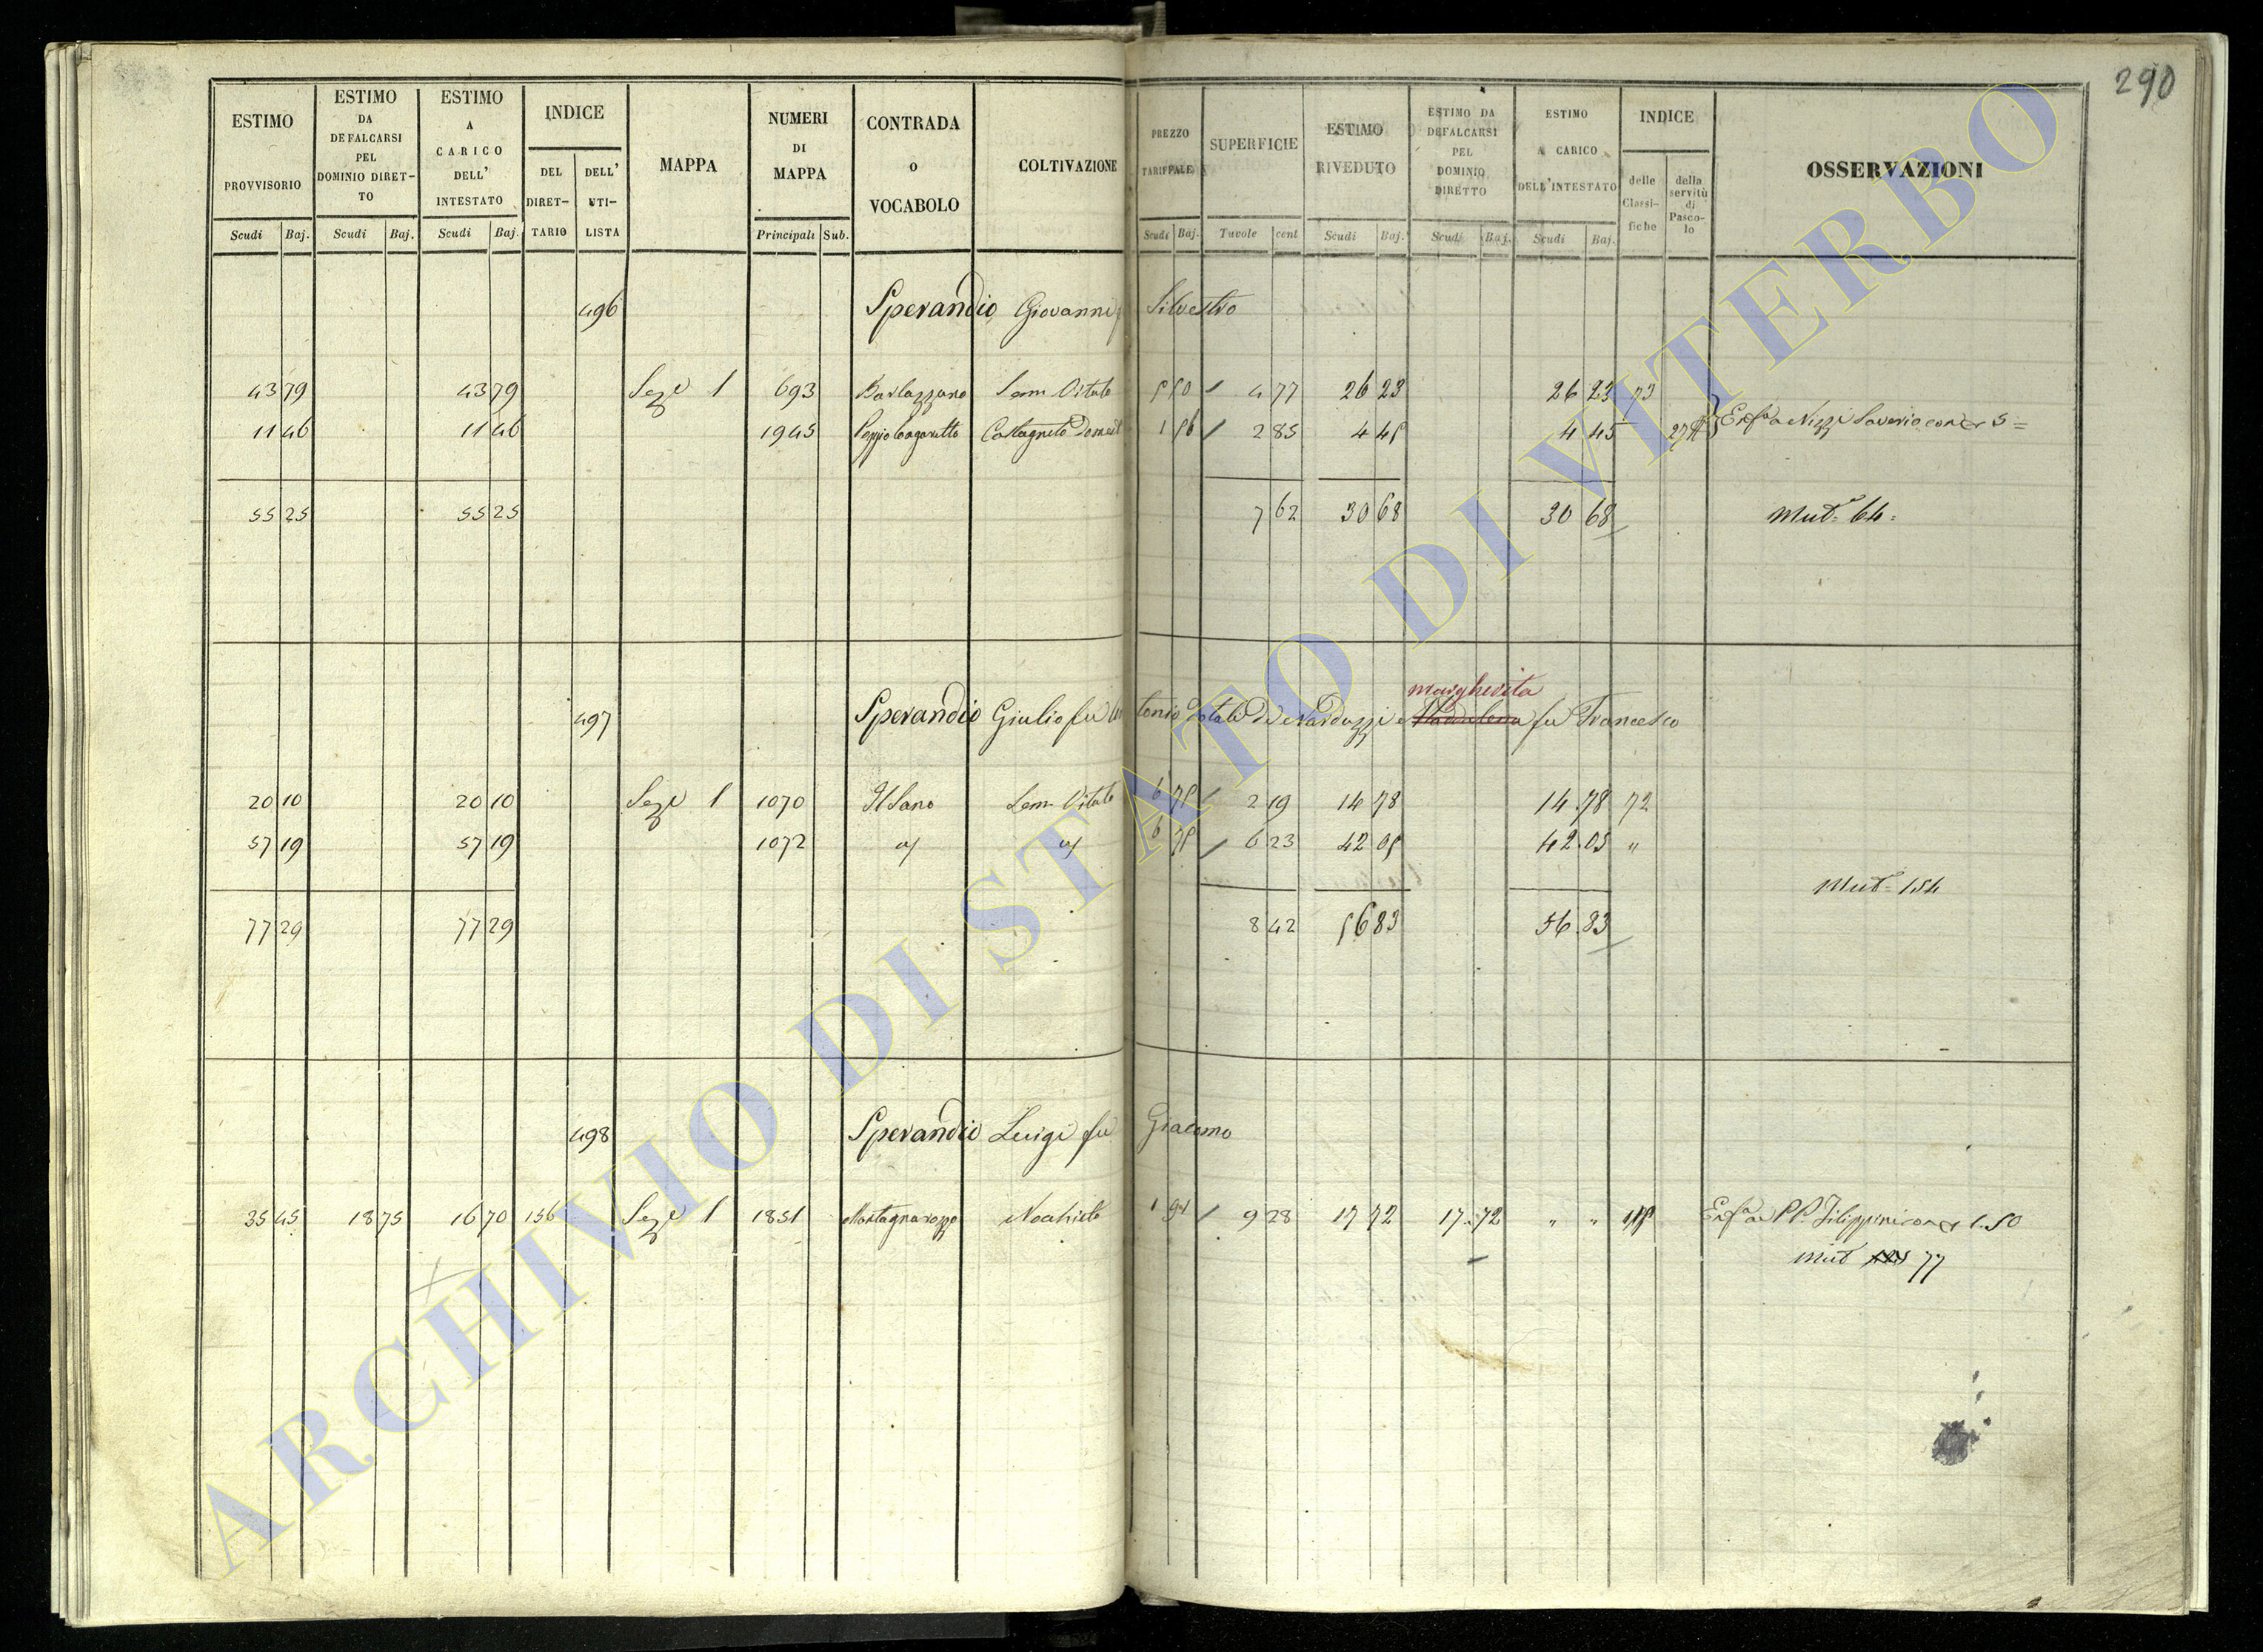 290
ESTIMO PROVVISORIO Scudi Baj.
ESTIMO DA DEFALCARSI PEL DOMINIO DIRET-TO Scudi Baj.
ESTIMO A CARICO DELL' INTESTATO Scudi Baj.
INDICE DEL DIRET-TARIO DELL' UTI-LISTA
MAPPA
NUMERI DI MAPPA Principali Sub.
CONTRADA o VOCABOLO
COLTIVAZIONE
PREZZO TARIFFALE Scudi Baj.
SUPERFICIE Tavole cent
ESTIMO RIVEDUTO Scudi Baj.
ESTIMO DA DEFALCARSI PEL DOMINIO DIRETTO Scudi Baj.
ESTIMO A CARICO DELL'INTESTATO Scudi Baj.
INDICE delle Classi-fiche della servitù di Pasco-lo
OSSERVAZIONI
496 Sperandio Giovanni Silvestro
43 79 43 79 Sez. I 693 Sem Vitato 5 50 4 77 26 23 26 23 73
11 46 11 46 1945 Castagneto Domest 1 56 2 85 4 45 4 45 Enfa a Nizzi Saverio 5 =
55 25 55 25 7 62 30 68 30 68 Mut. 64
497 Sperandio Giulio fu Antonio dotale di Narduzzi Margherita Maddalena fu Francesco
20 10 20 10 Sez. I 1070 Il Sano Sem Vitato 6 75 2 19 14 78 14.78 72
57 19 57 19 1072 6 75 6 23 42 05 42.05 "
Mut. 154
77 29 77 29 8 42 56 83 56.83
498 Sperandio Luigi fu Giacomo
35 45 18 75 16 70 156 Sez. I 1851 Montagnarozzo 1 91 9 28 17 72 17.72 " " Enfa a PP. Filippini 1.50
Mut 77
ARCHIVIO DI STATO DI VITERBO